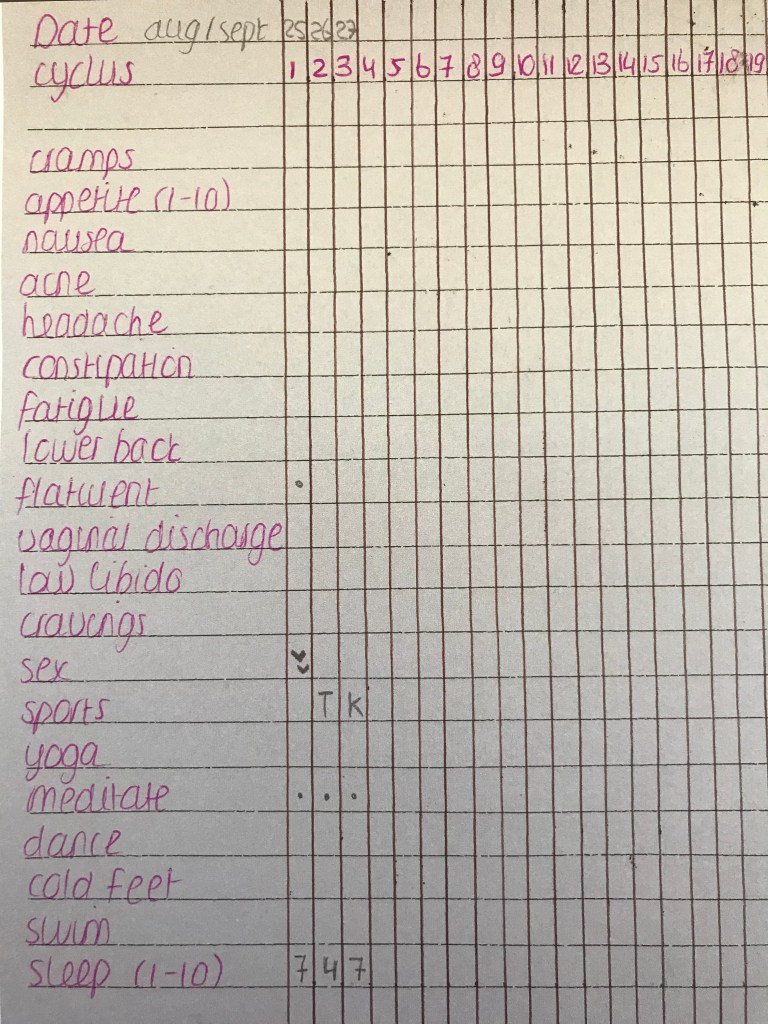 Date aug/sept 25 26 27
cyclus 1 2 3 4 5 6 7 8 9 10 11 12 13 14 15 16 17 18 19
cramps
appetite (1-10)
nausea
acne
headache
constipation
fatigue
lower back
flatulent
vaginal discharge
low libido
cravings
sex
sports T K
yoga
meditate . . .
dance
cold feet
swim
sleep (1-10) 7 4 7